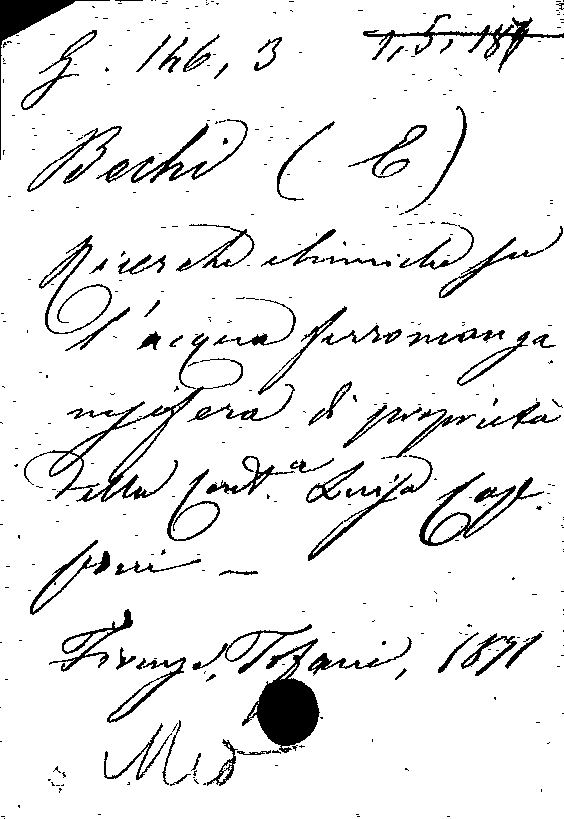 G. 146, 3 1, 5, 187
Bechi (E)
Ricerche chimiche su
l'acqua ferromanga
nesifera di proprietà
della Cont.a Luisa Capp.
poni —
Firenze, Tofani, 1871
Med